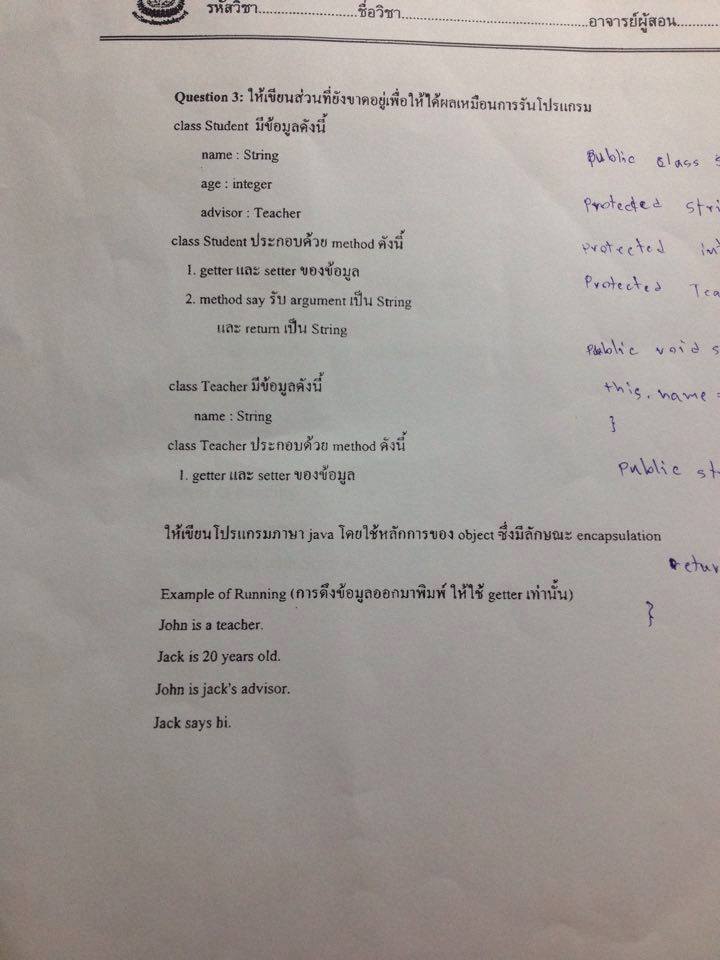 รหัสวิชา..........................ชื่อวิชา.................................................อาจารย์ผู้สอน...........
Question 3: ให้เขียนส่วนที่ยังขาดอยู่เพื่อให้ได้ผลเหมือนการรันโปรแกรม
class Student มีข้อมูลดังนี้
name : String
age : integer
advisor : Teacher
class Student ประกอบด้วย method ดังนี้
1. getter และ setter ของข้อมูล
2. method say รับ argument เป็น String
และ return เป็น String
class Teacher มีข้อมูลดังนี้
name : String
class Teacher ประกอบด้วย method ดังนี้
1. getter และ setter ของข้อมูล
ให้เขียนโปรแกรมภาษา java โดยใช้หลักการของ object ซึ่งมีลักษณะ encapsulation
Example of Running (การดึงข้อมูลออกมาพิมพ์ ให้ใช้ getter เท่านั้น)
John is a teacher.
Jack is 20 years old.
John is jack's advisor.
Jack says hi.
public class
Protected
protected
Protected
public void
this.name =
}
public
}